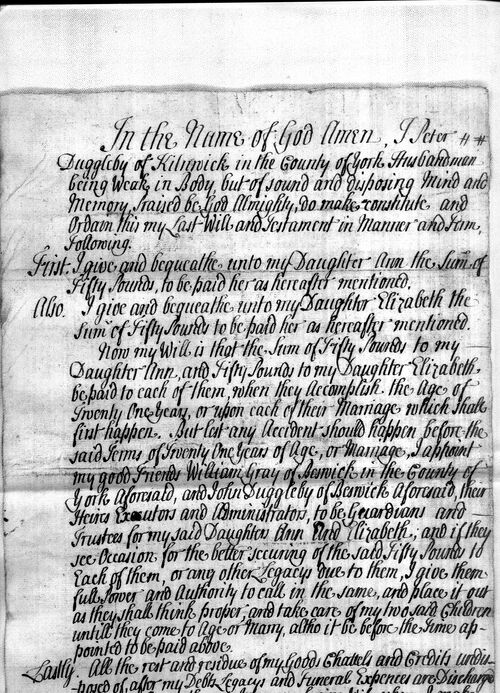 In the Name of God Amen, I Peter
Duggleby of Kilnwick in the County of York Husbandman
being Weak in Body, but of sound and disposing Mind and
Memory, Praised be God Almighty, do make constitute and
Ordain this my Last Will and Testament in Manner and Form,
Following.
First. I give and bequeathe unto my Daughter Ann the Sum of
Fifty Pounds, to be paid her as hereafter mentioned.
Also. I give and bequeathe unto my Daughter Elizabeth the
Sum of Fifty Pounds to be paid her as hereafter mentioned.
Now my Will is that the Sum of Fifty Pounds to my
Daughter Ann, and Fifty Pounds to my Daughter Elizabeth,
be paid to each of them, when they Accomplish the Age of
Twenty One Years, or upon each of their Marriage which shall
first happen. But lest any Accident should happen before the
said Terms of Twenty One Years of Age, or Marriage, I appoint
my good Friends William Gray of Beswick in the County of
York Aforesaid, and John Duggleby of Beswick Aforesaid, their
Heirs Executors and Administrators, to be Guardians and
Trustees for my said Daughters Ann and Elizabeth; and if they
see Occasion, for the better securing of the said Fifty Pounds to
Each of them, or any other Legacys due to them, I give them
full Power and Authority to call in the same, and place it out
as they shall think proper, and take care of my two said Children
untill they come to Age or Marry, altho it be before the time ap-
pointed to be paid above.
Lastly. All the rest and residue of my Goods Chattels and Credits undis-
posed of, after my Debts Legacys and Funeral Expences are Discharged